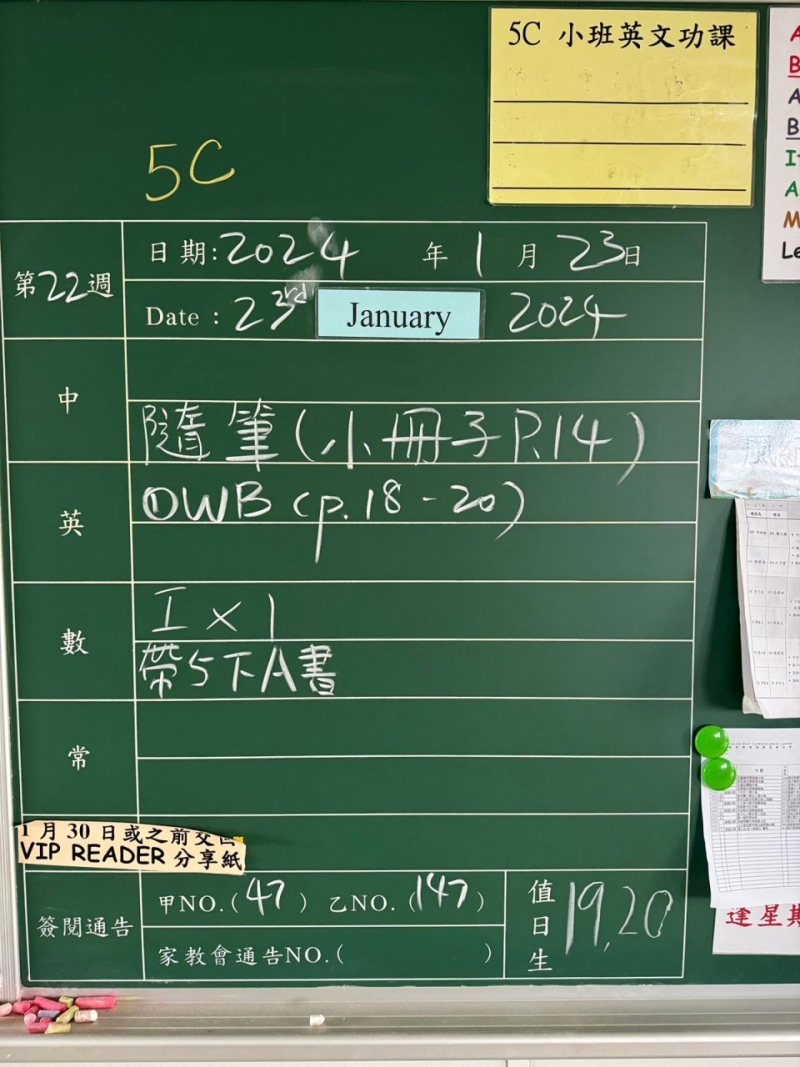 5C 小班英文功課
5C
第22週
日期:2024 年 1 月 23日
Date : 23rd January 2024
中
隨筆(小冊子P.14)
英
OWB (p.18-20)
數
I x 1
帶5下A書
常
1月30日或之前交回
VIP READER 分享紙
簽閱通告
甲NO.(47) 乙NO.(147)
家教會通告NO.( )
值日生 19,20
逢星期